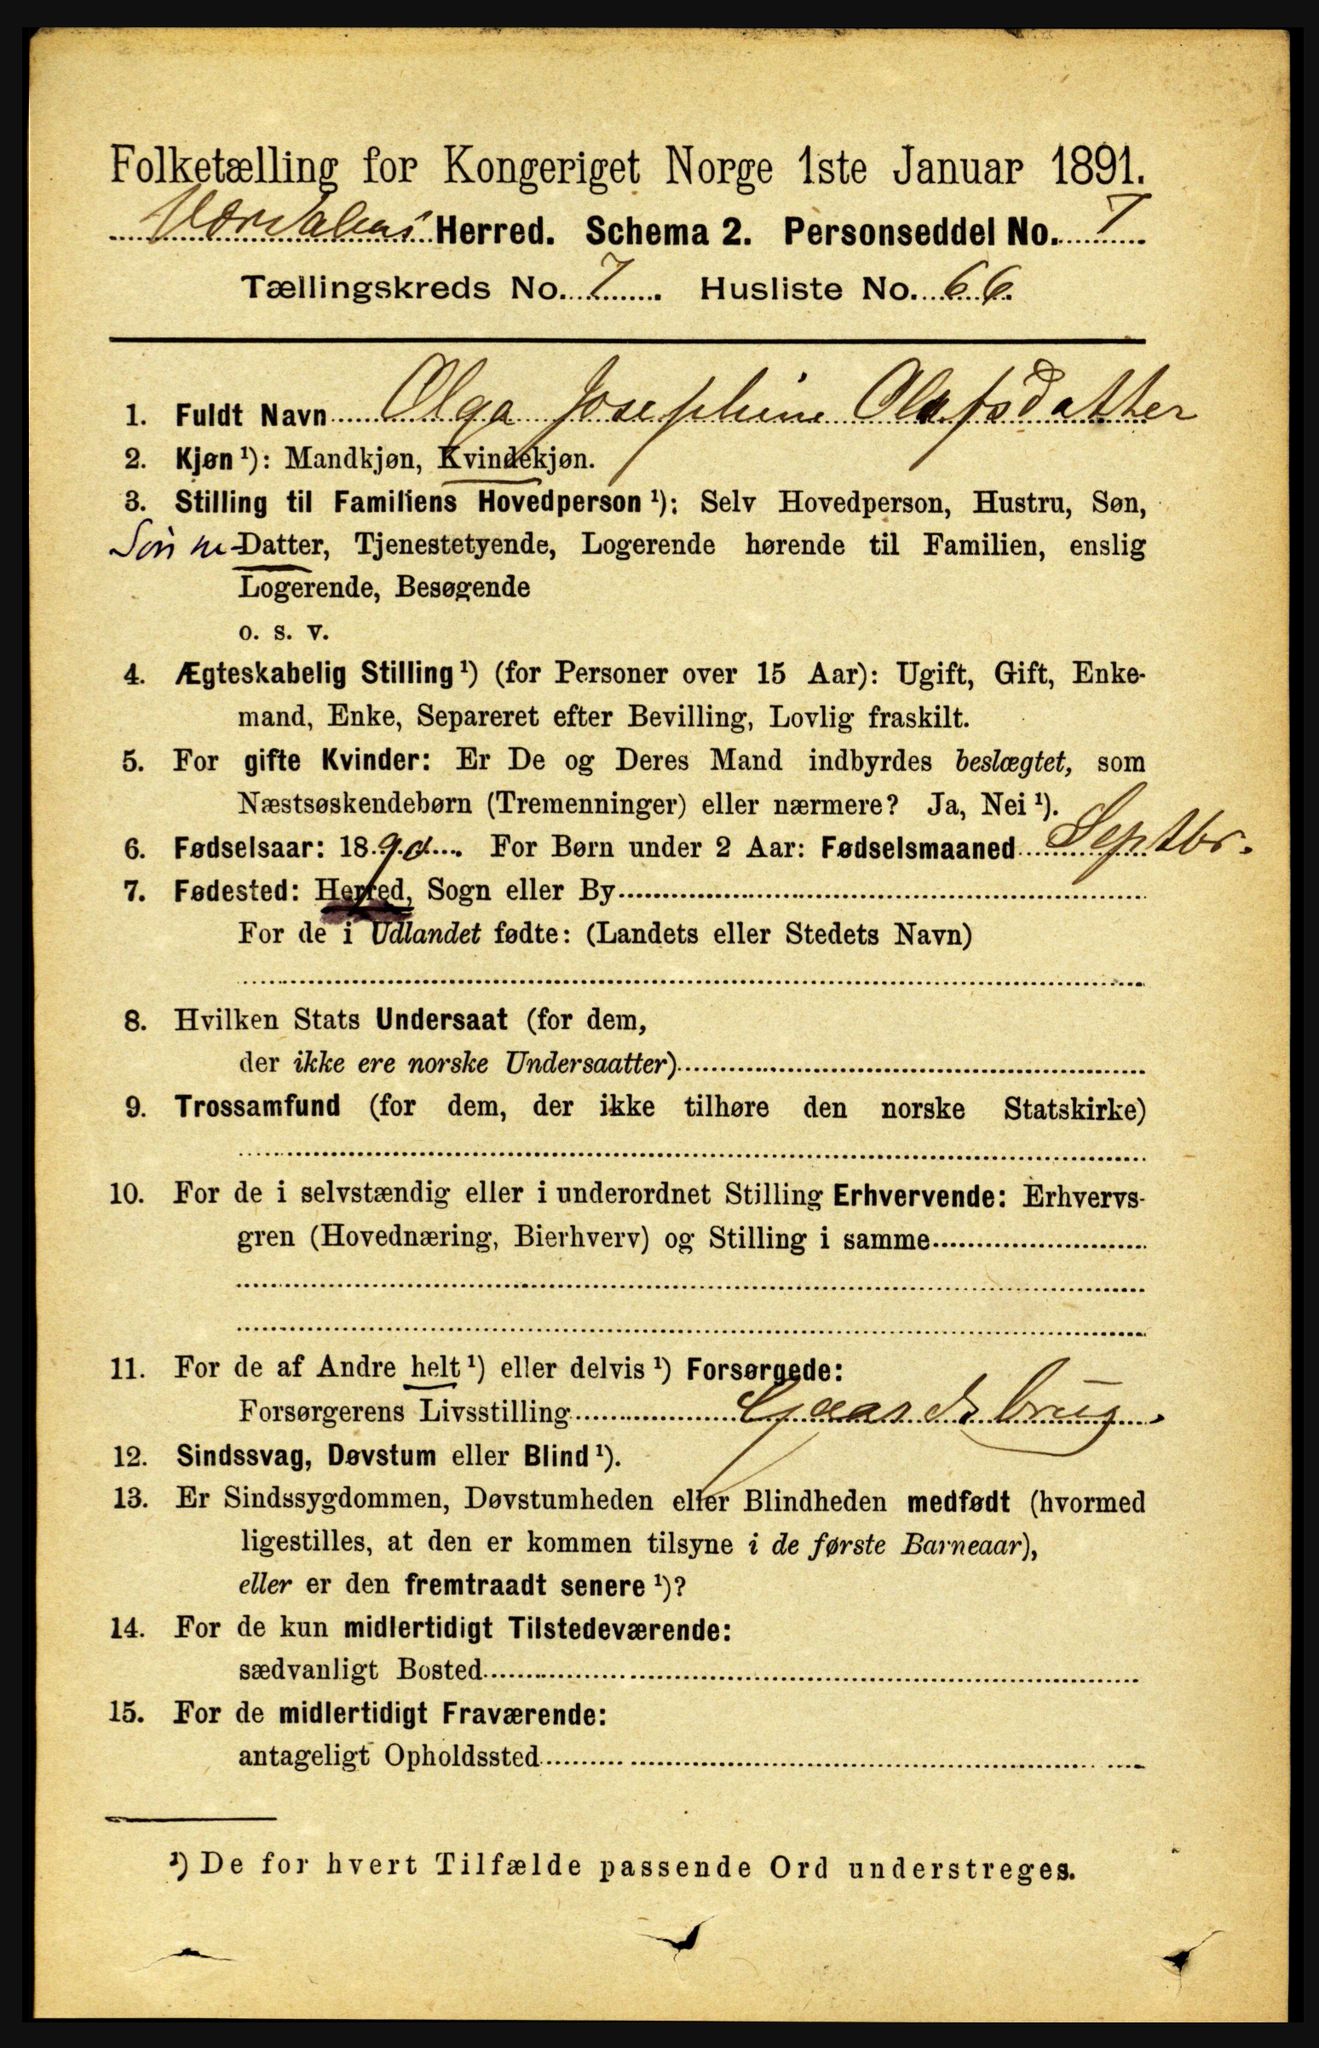 Folketælling for Kongeriget Norge 1ste Januar 1891.
Værdalens Herred. Schema 2. Personseddel No. 7
Tællingskreds No. 7. Husliste No. 66.
1. Fuldt Navn Olga Josephine Olafsdatter
2. Kjøn ¹): Mandkjøn, Kvindekjøn.
3. Stilling til Familiens Hovedperson ¹): Selv Hovedperson, Hustru, Søn,
Sønne-Datter, Tjenestetyende, Logerende hørende til Familien, enslig
Logerende, Besøgende
o. s. v.
4. Ægteskabelig Stilling ¹) (for Personer over 15 Aar): Ugift, Gift, Enke-
mand, Enke, Separeret efter Bevilling, Lovlig fraskilt.
5. For gifte Kvinder: Er De og Deres Mand indbyrdes beslægtet, som
Næstsøskendebørn (Tremenninger) eller nærmere? Ja, Nei ¹).
6. Fødselsaar: 1890. For Børn under 2 Aar: Fødselsmaaned Septbr.
7. Fødested: Herred, Sogn eller By
For de i Udlandet fødte: (Landets eller Stedets Navn)
8. Hvilken Stats Undersaat (for dem,
der ikke ere norske Undersaatter)
9. Trossamfund (for dem, der ikke tilhøre den norske Statskirke)
10. For de i selvstændig eller i underordnet Stilling Erhvervende: Erhvervs-
gren (Hovednæring, Bierhverv) og Stilling i samme
11. For de af Andre helt ¹) eller delvis ¹) Forsørgede:
Forsørgerens Livsstilling Gaardsbrug.
12. Sindssvag, Døvstum eller Blind ¹).
13. Er Sindssygdommen, Døvstumheden eller Blindheden medfødt (hvormed
ligestilles, at den er kommen tilsyne i de første Barneaar),
eller er den fremtraadt senere ¹)?
14. For de kun midlertidigt Tilstedeværende:
sædvanligt Bosted
15. For de midlertidigt Fraværende:
antageligt Opholdssted
¹) De for hvert Tilfælde passende Ord understreges.